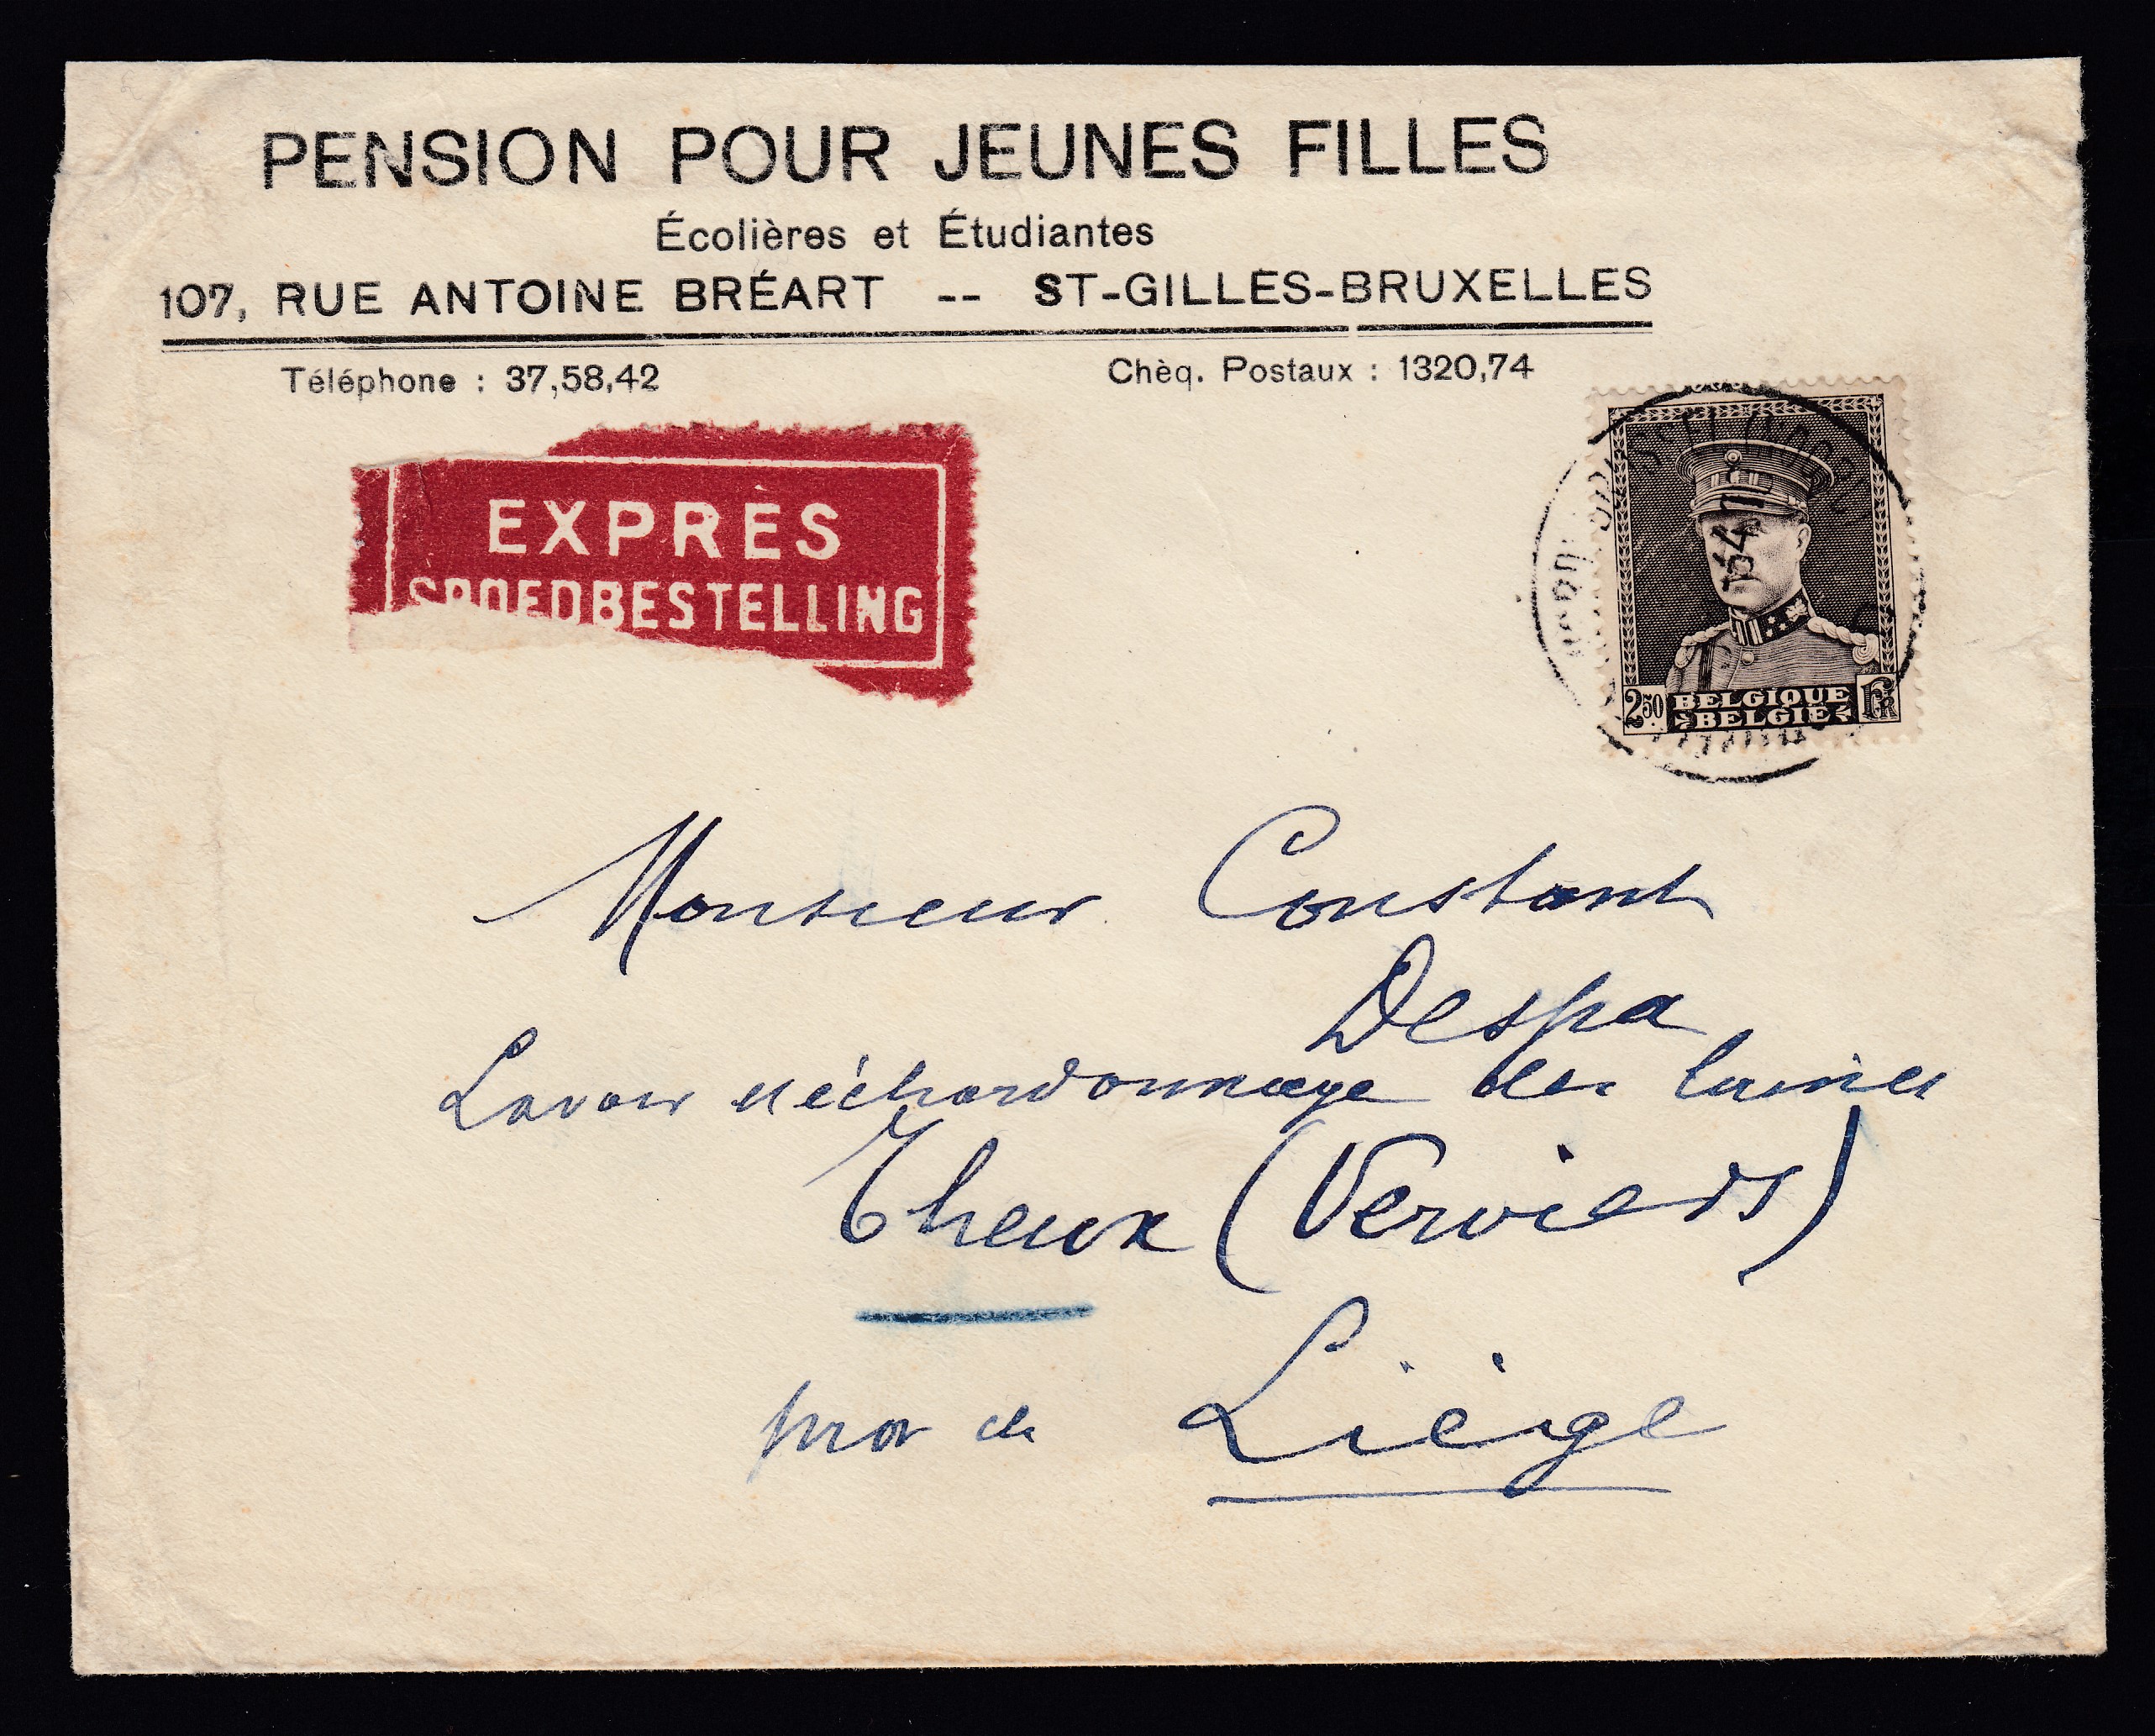 PENSION POUR JEUNES FILLES
Écolières et Étudiantes
107, RUE ANTOINE BRÉART -- ST-GILLES-BRUXELLES
Téléphone : 37,58,42 Chèq. Postaux : 1320,74
EXPRÈS
SPOEDBESTELLING
2.50 BELGIQUE Fr
BELGIE FR
Monsieur Constant
Despa
Lavoir et échardonnage des laines
Theux (Verviers)
prov de Liège